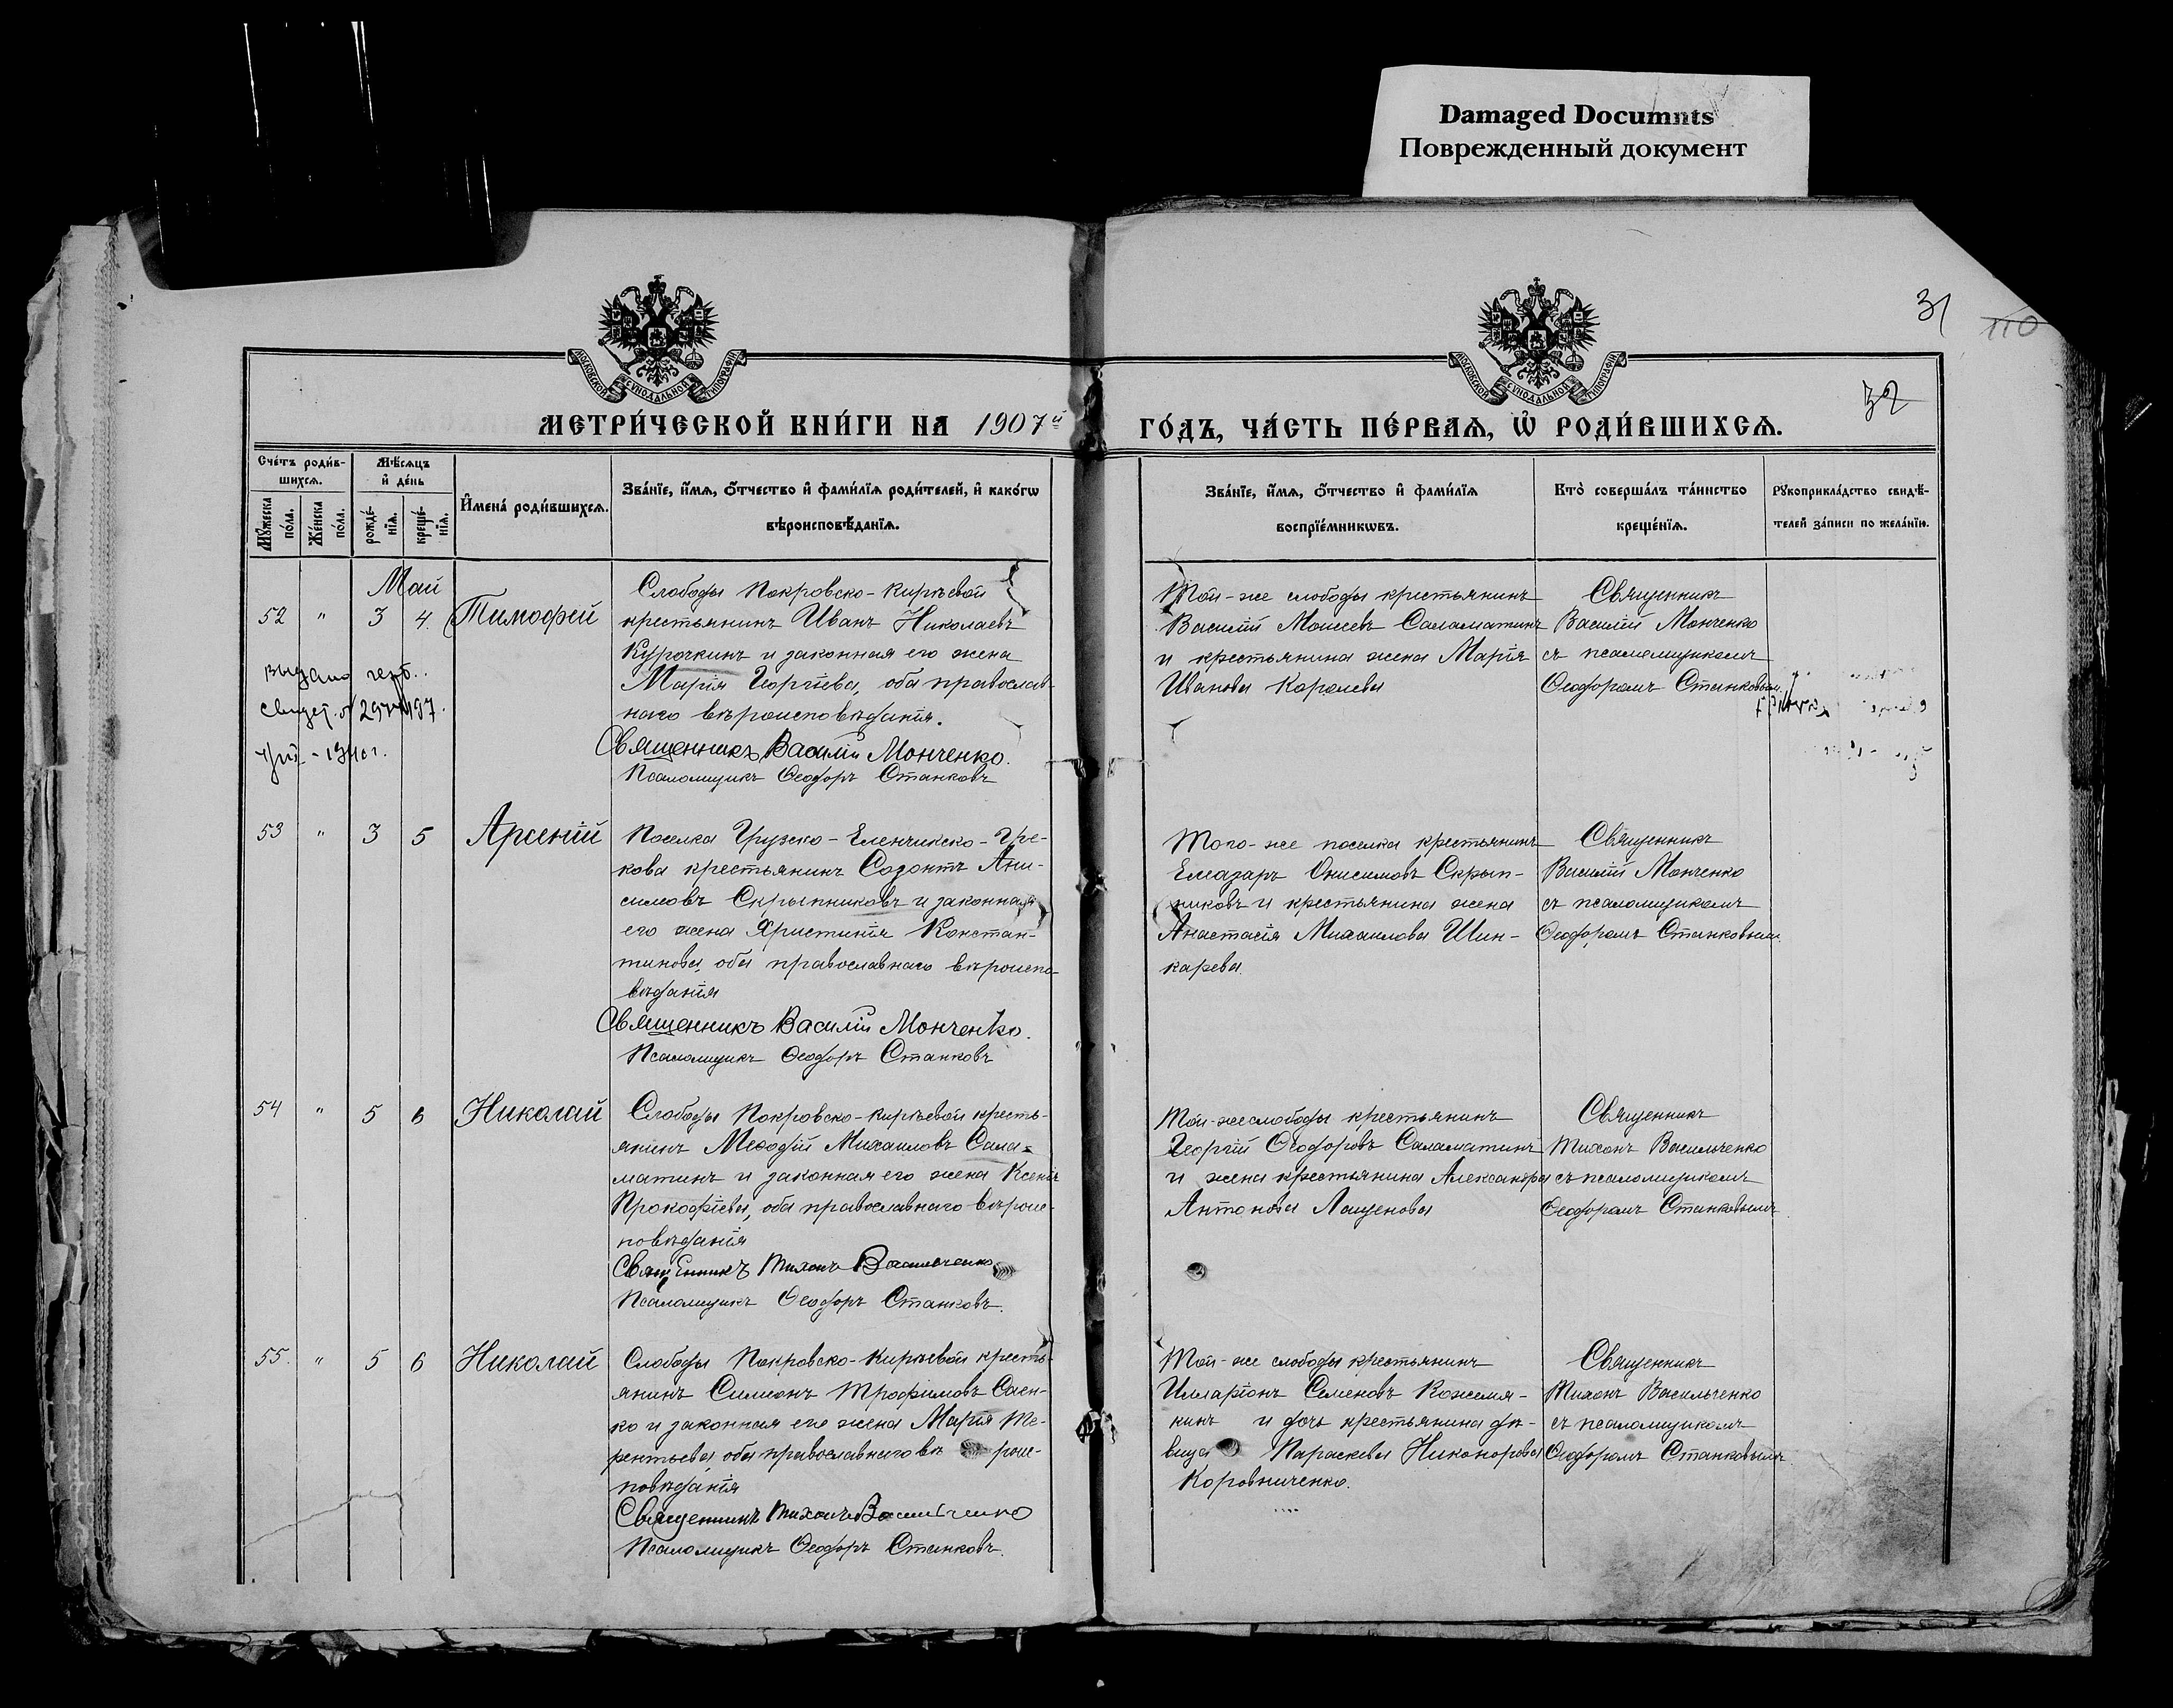 Damaged Documnts
Поврежденный документ
31
110
32
МОСКОВСКОЙ СУНОДАЛЬНОЙ ТИПОГРАФІИ
МОСКОВСКОЙ СУНОДАЛЬНОЙ ТИПОГРАФІИ
МЕТРИ́ЧЕСКОЙ КНИ́ГИ НА 1907й
ГО́ДЪ, ЧА́СТЬ ПЕ́РВАѦ, Ѡ҆ РОДИ́ВШИХСѦ.
Сче́тъ роди́в-
шихсѧ.
Мꙋ́жеска
по́ла.
Же́нска
по́ла.
Мѣ́сѧцъ
и҆ де́нь
рожде́-
нїѧ.
креще́-
нїѧ.
И҆мена̀ роди́вшихсѧ.
Зва́нїе, и҆́мѧ, ѻ҆́тчество и҆ фами́лїѧ роди́телей, и҆ како́гѡ
вѣроисповѣ́данїѧ.
Зва́нїе, и҆́мѧ, ѻ҆́тчество и҆ фами́лїѧ
воспрїе́мникѡвъ.
Кто̀ соверша́лъ та́инство
креще́нїѧ.
Рꙋкоприкла́дство свидѣ́-
телей за́писи по жела́нїю.
Май
52 " 3 4 Тимофей
Слободы Покровско-Кирѣевой
крестьянинъ Иванъ Николаевъ
Курочкинъ и законная его жена
Марія Георгіева, оба православ-
наго вѣроисповѣданія.
Священникъ Василій Монченко.
Псаломщикъ Ѳеодоръ Станковъ
Той-же слободы крестьянинъ
Василій Моисеевъ Саламатинъ
и крестьянина жена Марія
Иванова Королева
Священникъ
Василій Монченко
съ псаломщикомъ
Ѳеодоромъ Станковым
выдано
свидет.
53 " 3 5 Арсеній
Поселка Грузско-Еленчикско-Гре-
кова крестьянинъ Созонтъ Ани-
симовъ Скрыпниковъ и законная
его жена Христинія Констан-
тинова, оба православнаго вѣроиспо-
вѣданія
Священникъ Василій Монченко.
Псаломщикъ Ѳеодоръ Станковъ
Того-же поселка крестьянинъ
Елеазаръ Онисимовъ Скрып-
никовъ и крестьянина жена
Анастасія Михаилова Шин-
карева.
Священникъ
Василій Монченко
съ псаломщикомъ
Ѳеодоромъ Станковым
54 " 5 6 Николай
Слободы Покровско-Кирѣевой кресть-
янинъ Меѳодій Михаиловъ Сала-
матинъ и законная его жена Ксенія
Прокофіева, оба православнаго вѣроис-
повѣданія
Священникъ Тихонъ Васильченко
Псаломщикъ Ѳеодоръ Станковъ.
Той-же слободы крестьянинъ
Георгій Ѳеодоровъ Саламатинъ
и жена крестьянина Александра
Антонова Лащенова
Священникъ
Тихонъ Васильченко
съ псаломщикомъ
Ѳеодоромъ Станковымъ
55. " 5 6 Николай
Слободы Покровско-Кирѣевой кресть-
янинъ Симеонъ Трофимовъ Саен-
ко и законная его жена Марія Те-
рентьева, оба православнаго вѣ роис-
повѣданія
Священникъ Тихонъ Васильченко
Псаломщикъ Ѳеодоръ Станковъ.
Той-же слободы крестьянинъ
Илларіонъ Семеновъ Кожемя-
кинъ и дочь крестьянина дѣ-
вица Параскева Никонорова
Коровниченко.
Священникъ
Тихонъ Васильченко
съ псаломщикомъ
Ѳеодоромъ Станковымъ